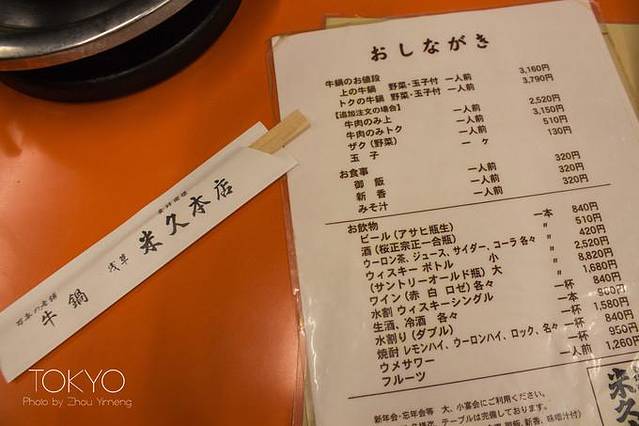 おしながき
牛鍋のお値段
上の牛鍋 野菜・玉子付 一人前 3,160円
トクの牛鍋 野菜・玉子付 一人前 3,790円
【追加注文の場合】
牛肉のみ上 一人前 2,520円
牛肉のみトク 一人前 3,150円
ザク(野菜) 一人前 510円
玉子 一ヶ 130円
お食事
御飯 一人前 320円
新香 一人前 320円
みそ汁 一人前 320円
お飲物
ビール(アサヒ瓶生) 一本 840円
酒(桜正宗正一合瓶) 〃 510円
ウーロン茶、ジュース、サイダー、コーラ各々 〃 420円
ウィスキー ボトル 小 2,520円
(サントリーオールド瓶) 大 〃 8,820円
ワイン(赤 白 ロゼ)各々 〃 1,680円
水割 ウィスキーシングル 一杯 840円
生酒、冷酒 各々 一本
水割り(ダブル) 一杯 1,580円
焼酎 レモンハイ、ウーロンハイ、ロック、各々 一杯 840円
ウメサワー 一杯 950円
フルーツ 一人前 1,260円
新年会・忘年会等 大、小宴会にご利用ください。
テーブルは完備しております。
御飯、新香、味噌汁付)
米久
百年の老舗
牛鍋
浅草
米久本店
TOKYO
Photo by Zhou Yimeng